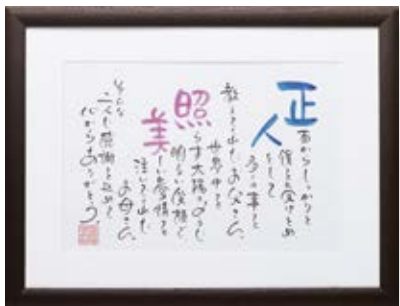 正面からしっかりと
僕を受けとめ
人として
多くの事を
教えてくれたお父さん。
世界中を
照らす太陽のように
明るい笑顔で
美しい愛情を
注いでくれた
お母さん。
そんな
二人に感謝を込めて
心からありがとう。